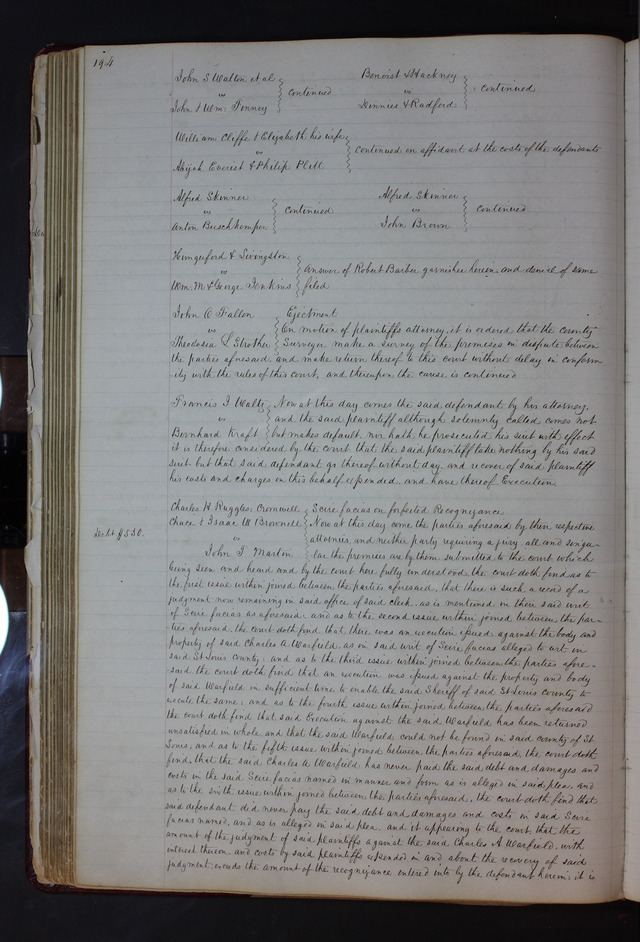 194
John S Walton et al
vs
John & Wm. Tenney
continued
Benoist & Hackney
vs
Dinnies & Radford
continued
William Cliffe & Elizabeth his wife
vs
Abijah Everist & Philip Plitt
continued on affidavit at the costs of the defendants
Alfred Skinner
vs
Anton
continued
Alfred Skinner
vs
John Brown
continued
Hungerford & Livingston
vs
Wm. M & George Jenkins
answer of Robert Barber garnishee herein and denial of same
filed
John C Fallon
vs
Theodosia L Strother
Ejectment
On motion of plaintiffs attorney, it is ordered that the county
Surveyor make a survey of the premises in dispute between
the parties aforesaid, and make return thereof to this court without delay in conform
ity with the rules of this court, and thereupon the cause is continued
Francis J Waltz
vs
Bernhard Kraft
Now at this day comes the said defendant by his attorney,
and the said plaintiff although solemnly called comes not
but makes default, nor hath he prosecuted his suit with effect
it is therefore considered by the court that the said plaintiff take nothing by his said
suit but that said defendant go thereof without day and recover of said plaintiff
his costs and charges in this behalf expended, and have thereof Execution
Debt $550.
Charles H Ruggles, Cromwell
Chace & Isaac W Brownell
vs
John T Martin
Scire facias on forfeited Recognizance
Now at this day come the parties aforesaid by their respective
attornies, and neither party requiring a jury all and singu-
lar the premises are by them submitted to the court which
being seen and heard and by the court here fully understood, the court doth find as to
the first issue within joined between the parties aforesaid, that there is such a record of a
judgment now remaining in said office of said clerk, as is mentioned in their said writ
of Scire facias as aforesaid, and as to the second issue within joined between the par-
ties aforesaid, the court doth find that there was an execution issued against the body and
property of said Charles A. Warfield, as in said writ of Scire facias alleged to wit in
said St Louis County. and as to the third issue within joined between the parties afore-
said the court doth find that an execution was issued against the property and body
of said Warfield in sufficient time to enable the said Sheriff of said St Louis County to
execute the same, and as to the fourth issue within joined between the parties aforesaid
the court doth find that said Execution against the said Warfield has been returned
unsatisfied in whole and that the said Warfield could not be found in said county of St
Louis; and as to the fifth issue within joined between the parties aforesaid, the court doth
find, that the said Charles A Warfield has never paid the said debt and damages and
costs in the said Scire facias named in manner and form as is alleged in said plea, and
as to the sixth issue within joined between the parties aforesaid, the court doth find that
said defendant did never pay the said debt and damages and costs in said Scire
facias named, and as is alleged in said plea. and it appearing to the court, that the
amount of the judgment of said plaintiffs against the said Charles A Warfield, with
interest thereon and costs by said plaintiffs expended in and about the recovery of said
judgment, exceeds the amount of the recognizance entered into by the defendant herein; it is